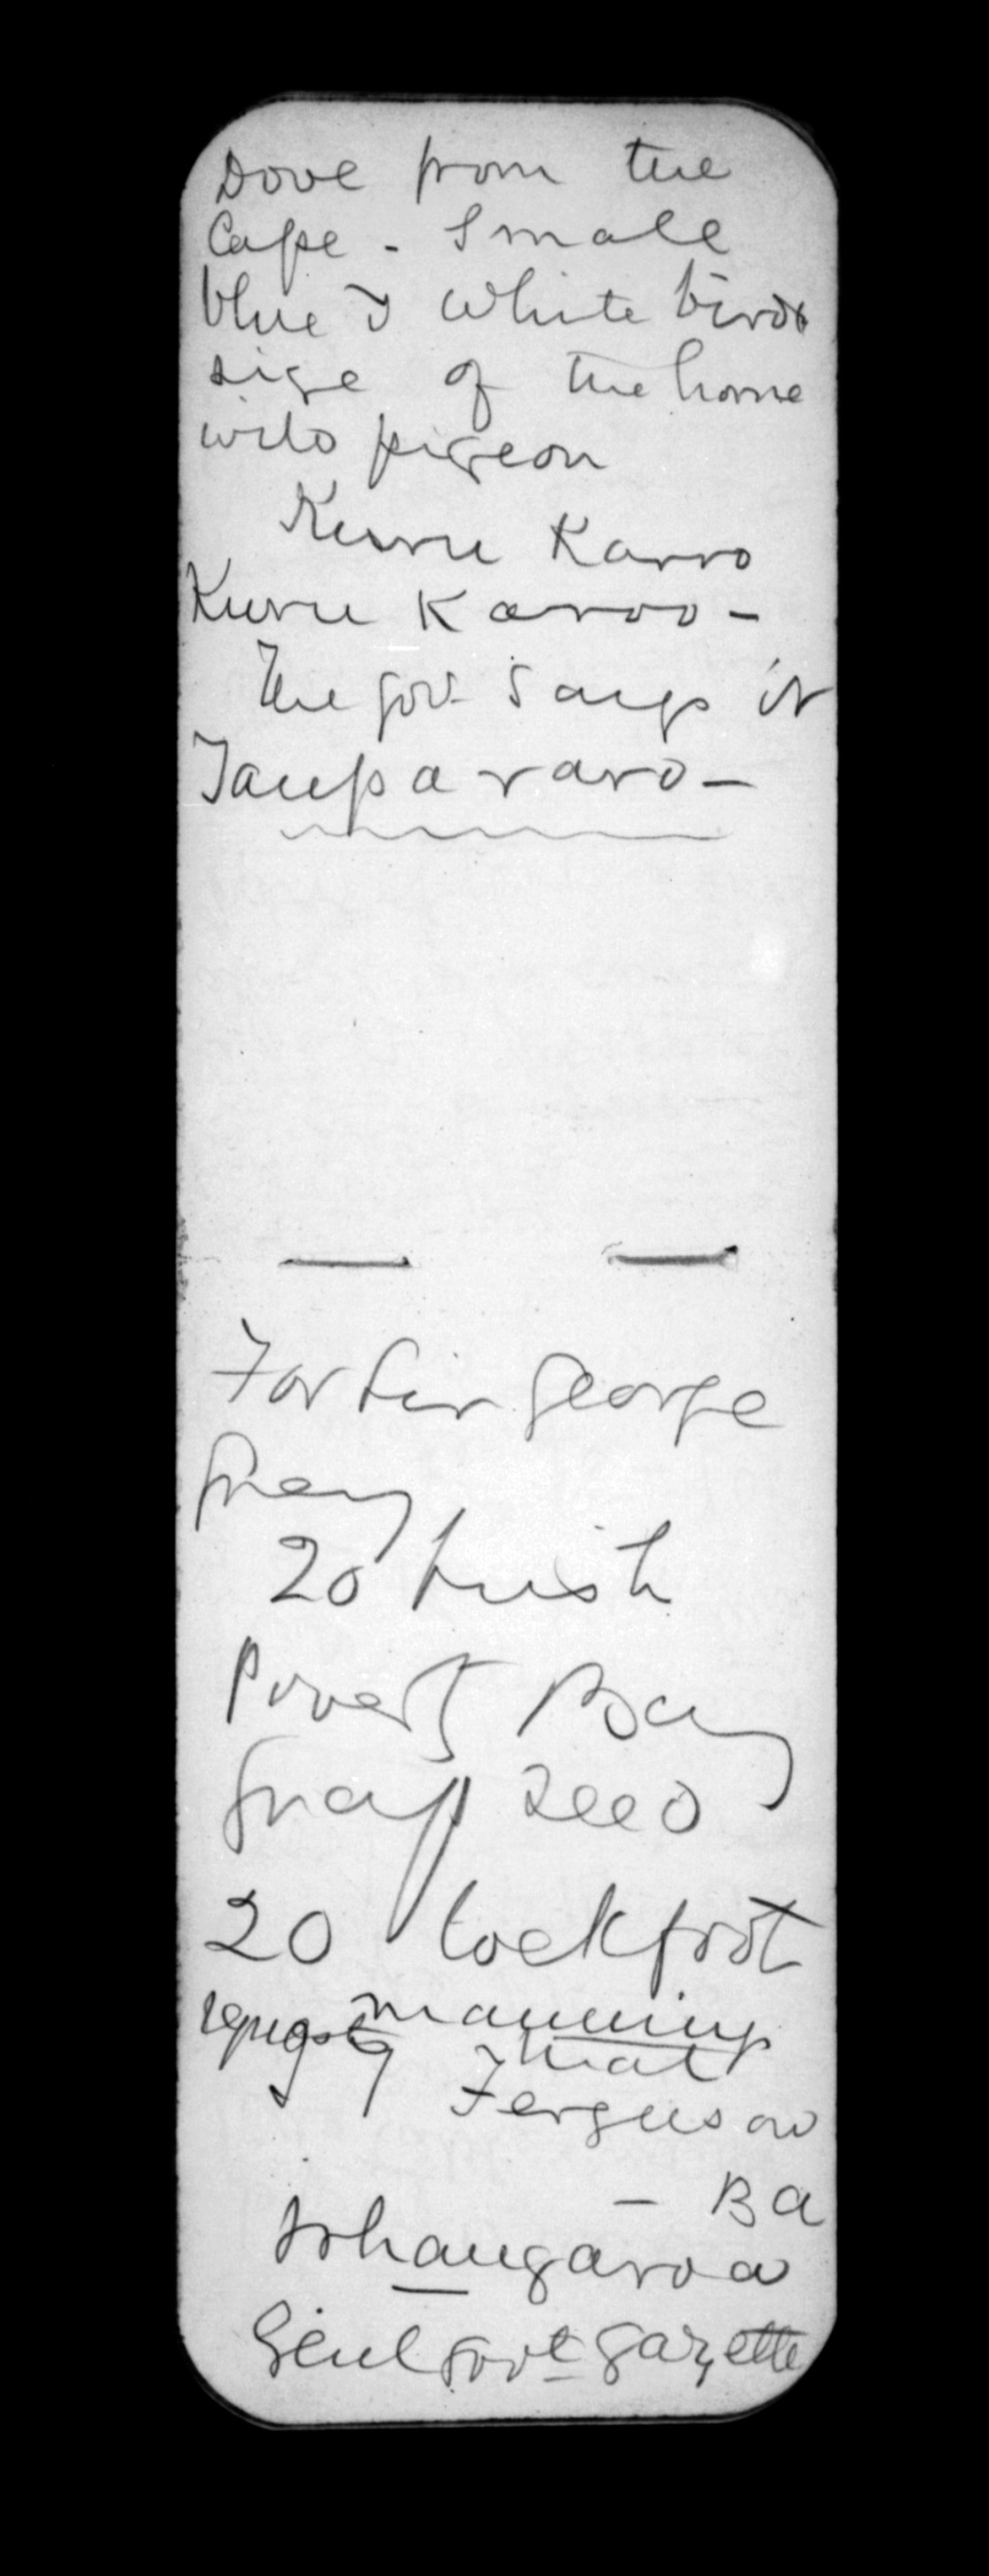 Dove from the
Cape - Small
blue & white birds
size of the home
wild pigeon
Kuru Karro
Kuru Karoo -
The Gov. says it
Taupararo -
For Sir George
Grey
20 bush
Poverty Bay
Grass seed
20 Cocksfoot
Manning
that
Ferguson
- Ba
Whangaroa
Genl Govt Gazette